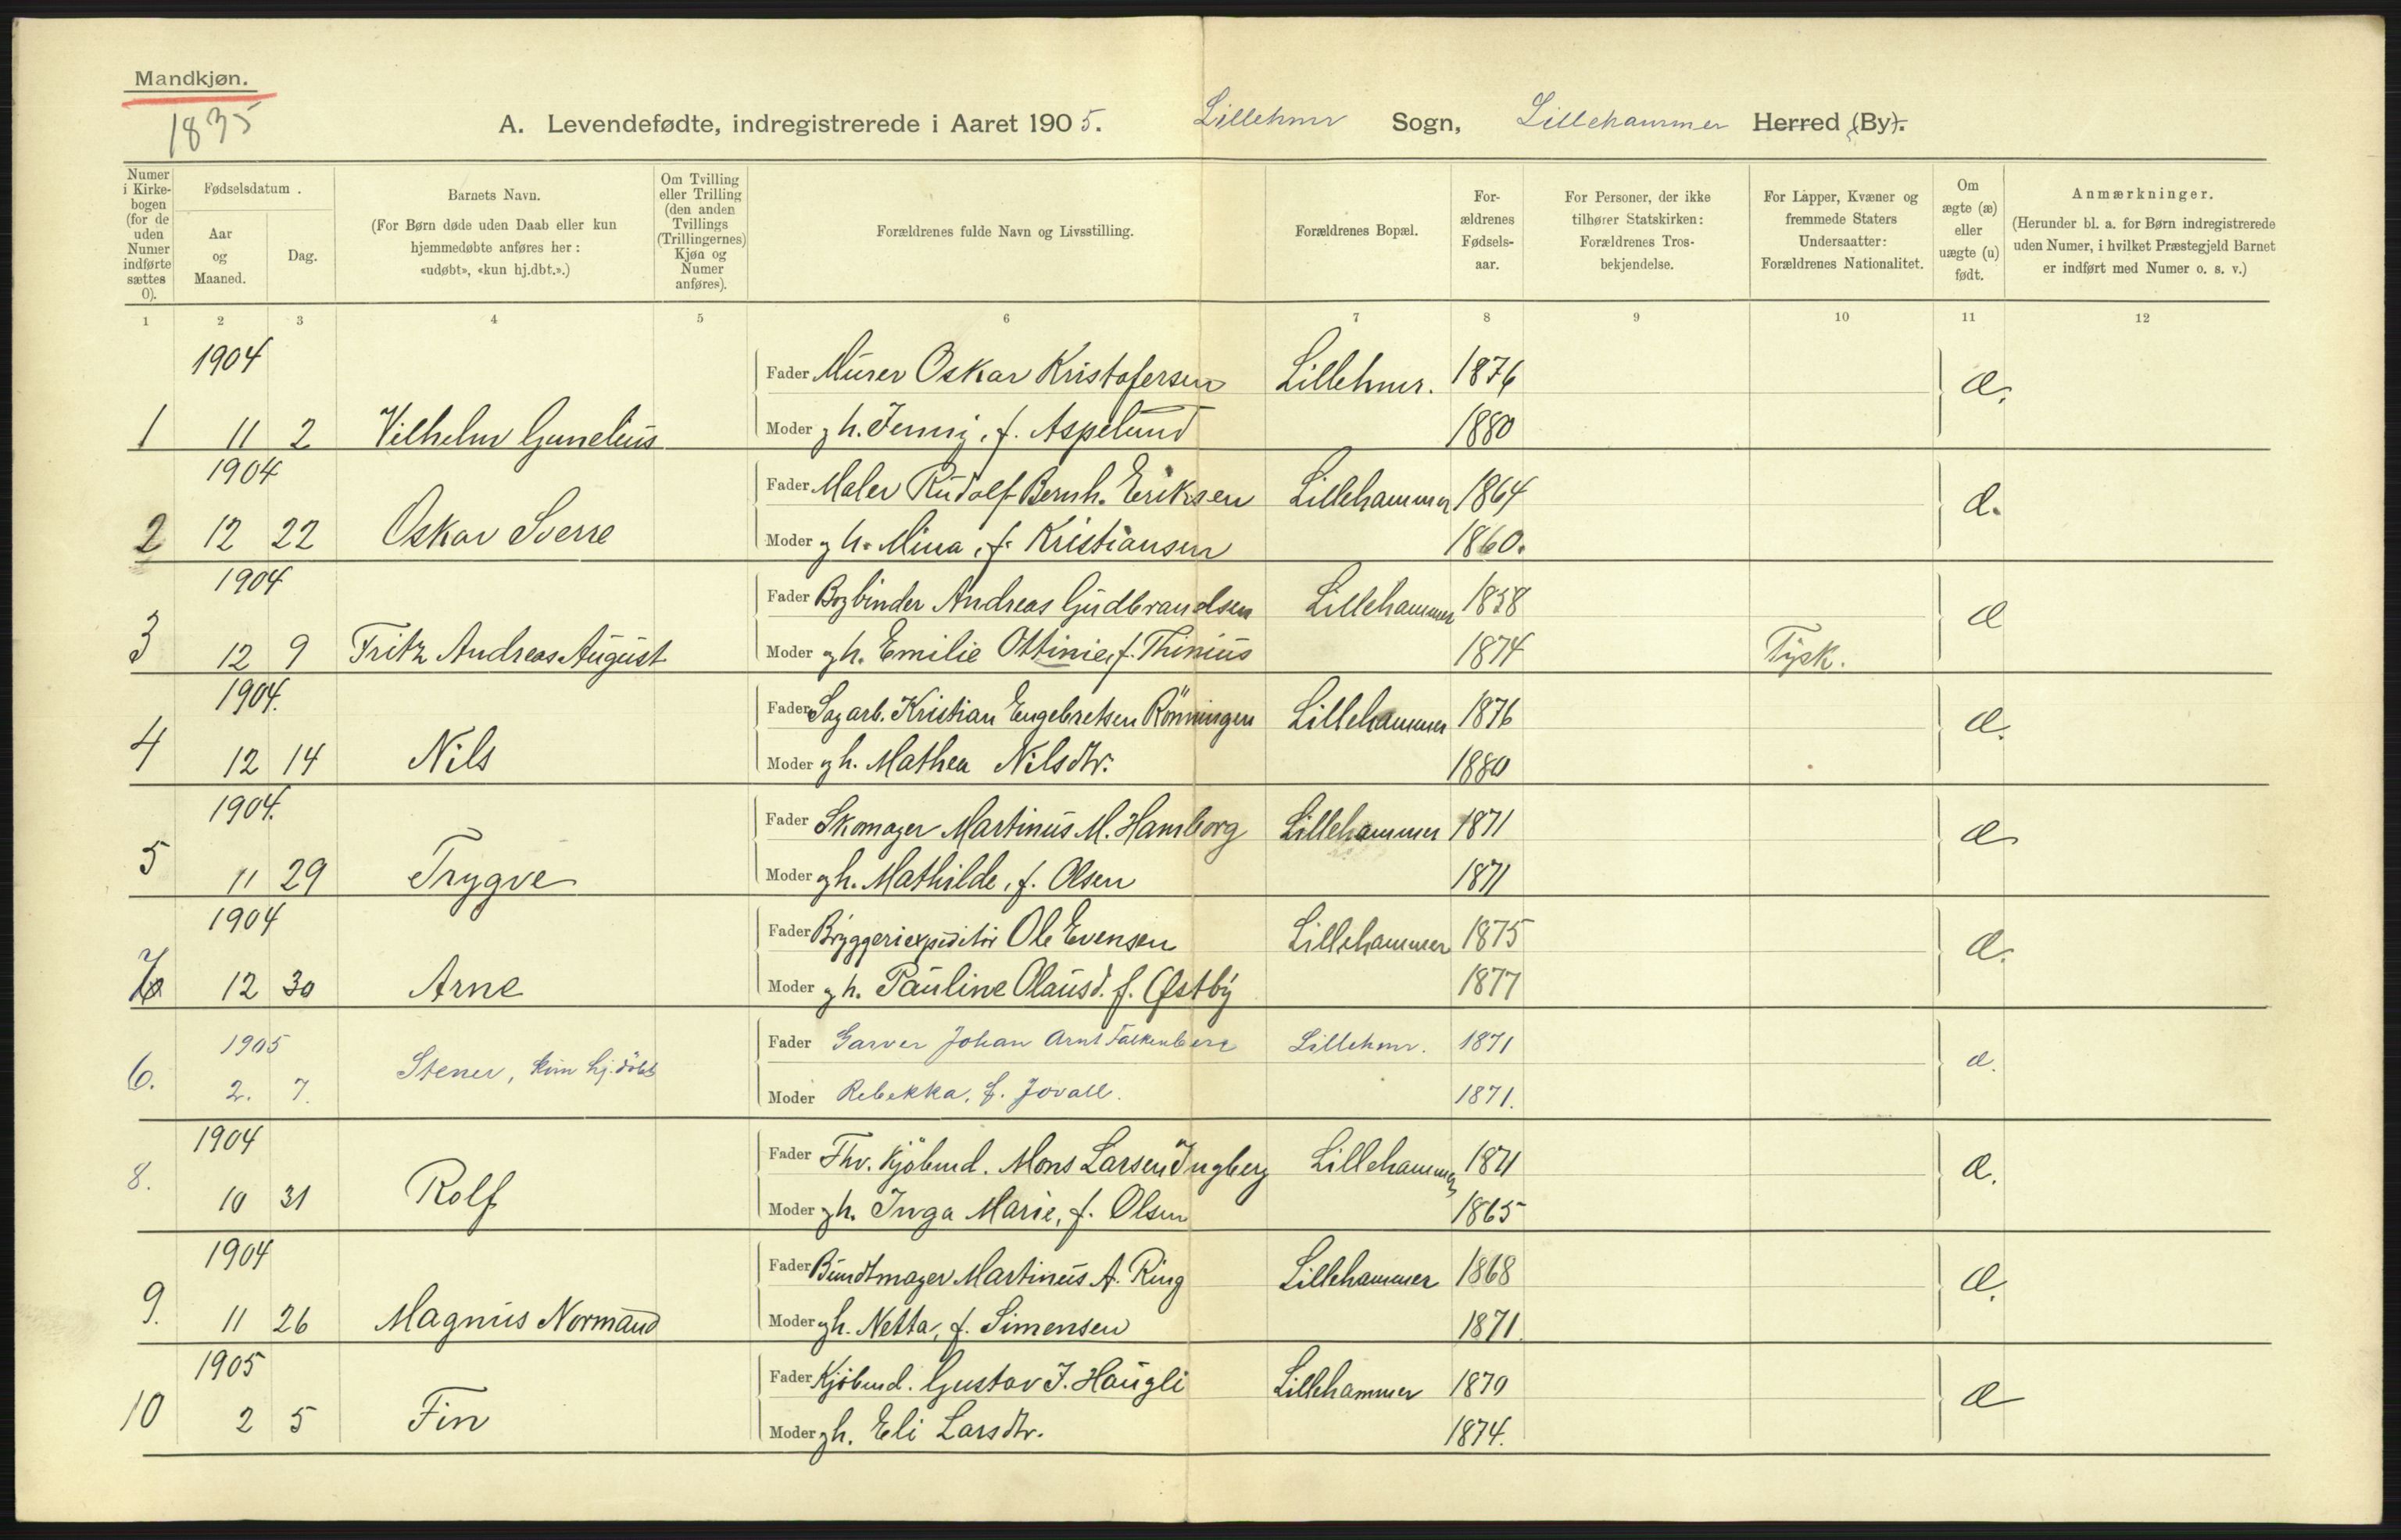 Mandkjøn.
1835
A. Levendefødte, indregistrerede i Aaret 1905. Lillehmr Sogn, Lillehammer Herred (By).
Numer i Kirkebogen (for de uden Numer indførte sættes 0).
Fødselsdatum.
Aar og Maaned.
Dag.
Barnets Navn.
(For Børn døde uden Daab eller kun hjemmedøbte anføres her: «udøbt», «kun hj.dbt.».)
Om Tvilling eller Trilling (den anden Tvillings (Trillingernes) Kjøn og Numer anføres).
Forældrenes fulde Navn og Livsstilling.
Forældrenes Bopæl.
For-ældrenes Fødsels-aar.
For Personer, der ikke tilhører Statskirken: Forældrenes Tros-bekjendelse.
For Lapper, Kvæner og fremmede Staters Undersaatter: Forældrenes Nationalitet.
Om ægte (æ) eller uægte (u) født.
Anmærkninger.
(Herunder bl. a. for Børn indregistrerede uden Numer, i hvilket Præstegjeld Barnet er indført med Numer o. s. v.)
1 2 3 4 5 6 7 8 9 10 11 12
1904
Fader Murer Oskar Kristofersen Lillehmr. 1876 æ.
1 11 2 Vilhelm Gunelius Moder gh. Jenny, f. Aspelund 1880
1904
Fader Maler Rudolf Bernh. Eriksen Lillehammer 1864 æ.
2 12 22 Oskar Sverre Moder gh. Mina, f. Kristiansen 1860.
1904
Fader Bogbinder Andreas Gudbrandsen Lillehammer 1858 æ
3 12 9 Fritz Andreas August Moder gh. Emilie Ottinie, f. Thinius 1874 Tysk.
1904.
Fader Sagarb. Kristian Engebretsen Rönningen Lillehammer 1876 æ.
4 12 14 Nils Moder gh. Mathea Nilsdtr. 1880
1904.
Fader Skomager Martinus M. Hamborg Lillehammer 1871 æ
5 11 29 Trygve Moder gh. Mathilde, f. Olsen 1871
1904
Fader Bryggeriexpeditör Ole Evensen Lillehammer 1875 æ.
12 30 Arne Moder gh. Pauline Olausd. f. Østby 1877
1905
Fader Garver Johan Arnt Falkenberg Lillehmr. 1871 æ.
6. 2. 7. Stener, kun hj.döbt Moder Rebekka, f. Jovall. 1871.
1904
Fader Fhv. Kjöbmd. Mons Larsen Ingberg Lillehammer 1871 æ.
8. 10 31 Rolf Moder gh. Inga Marie, f. Olsen 1865
1904
Fader Bundtmager Martinus A. Ring Lillehammer 1868 æ.
9. 11 26 Magnus Normand Moder gh. Netta, f. Simensen 1871.
1905
Fader Kjöbmd. Gustav J. Haugli Lillehammer 1870 æ
10 2 5 Fin Moder gh. Eli Larsdtr. 1874.